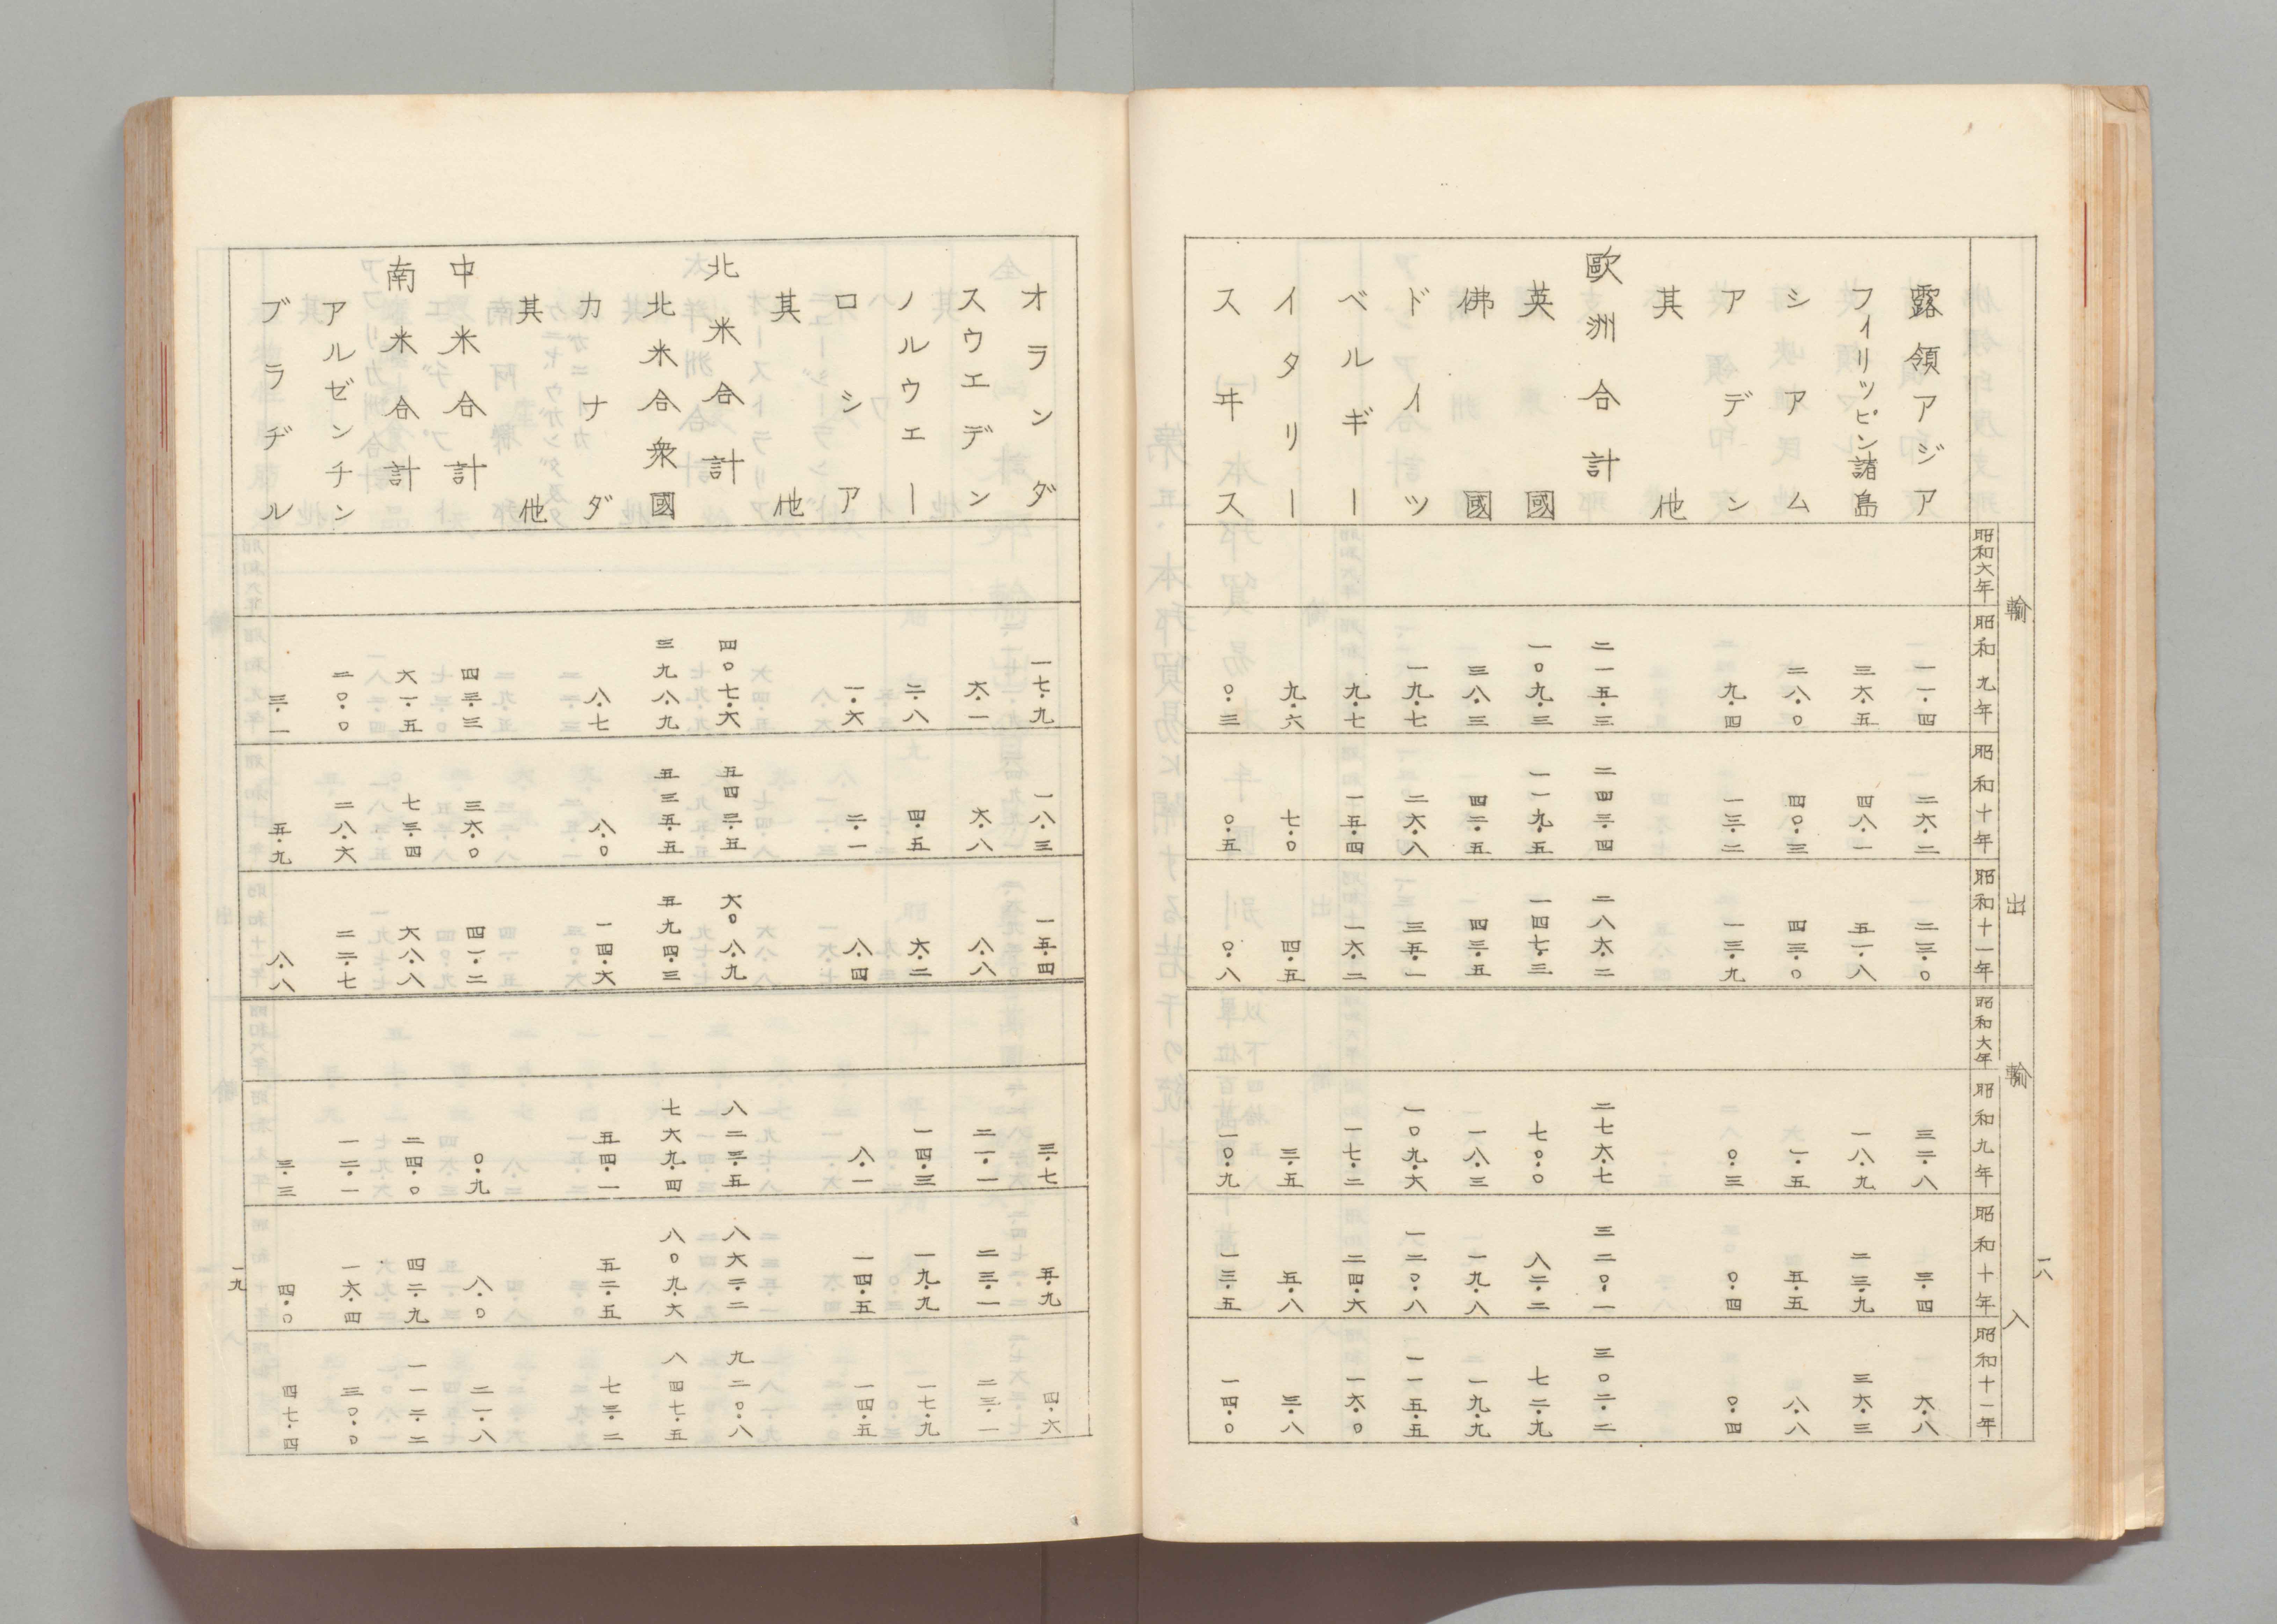 一八
輸出 輸入
昭和六年 昭和九年 昭和十年 昭和十一年 昭和六年 昭和九年 昭和十年 昭和十一年
露領アジア 一一・四 二六・二 二三・〇 三二・八 三・四 六・八
フィリッピン諸島 三六・五 四八・一 五一・八 一八・九 二三・九 三六・三
シアム 二八・〇 四〇・三 四三・〇 一・五 五・五 八・八
アデン 九・四 一三・二 一三・九 〇・三 〇・四 〇・四
其他
歐洲合計 二一五・三 二四三・四 二八六・二 二七六・七 三二〇・一 三〇二・二
英國 一〇九・三 一一九・五 一四七・三 七〇・〇 八二・二 七二・九
佛國 三八・三 四二・五 四三・五 一八・三 一九・八 一九・九
ドイツ 一九・七 二六・八 三五・一 一〇九・六 一二〇・八 一一五・五
ベルギー 九・七 一五・四 一六・二 一七・二 二四・六 一六・〇
イタリー 九・六 七・〇 四・五 三・五 五・八 三・八
スヰス 〇・三 〇・五 〇・八 一〇・九 一三・五 一四・〇
オランダ 一七・九 一八・三 一五・四 三・七 五・九 四・六
スウエデン 六・一 六・八 八・八 二一・一 二三・一 二三・一
ノルウェー 二・八 四・五 六・二 一四・三 一九・九 一七・九
ロシア 一・六 二・一 八・四 八・一 一四・五 一四・五
其他
北米合計 四〇七・六 五四三・五 六〇八・九 八二三・五 八六二・二 九二〇・八
北米合衆國 三九八・九 五三五・五 五九四・三 七六九・四 八〇九・六 八四七・五
カナダ 八・七 八・〇 一四・六 五四・一 五二・五 七三・二
其他
中米合計 四三・三 三六・〇 四一・二 〇・九 八・〇 二一・八
南米合計 六一・五 七三・四 六八・八 二四・〇 四二・九 一一二・二
アルゼンチン 二〇・〇 二八・六 二二・七 一二・一 一六・四 三〇・〇
ブラヂル 三・一 五・九 八・八 三・三 四・〇 四七・四
一九